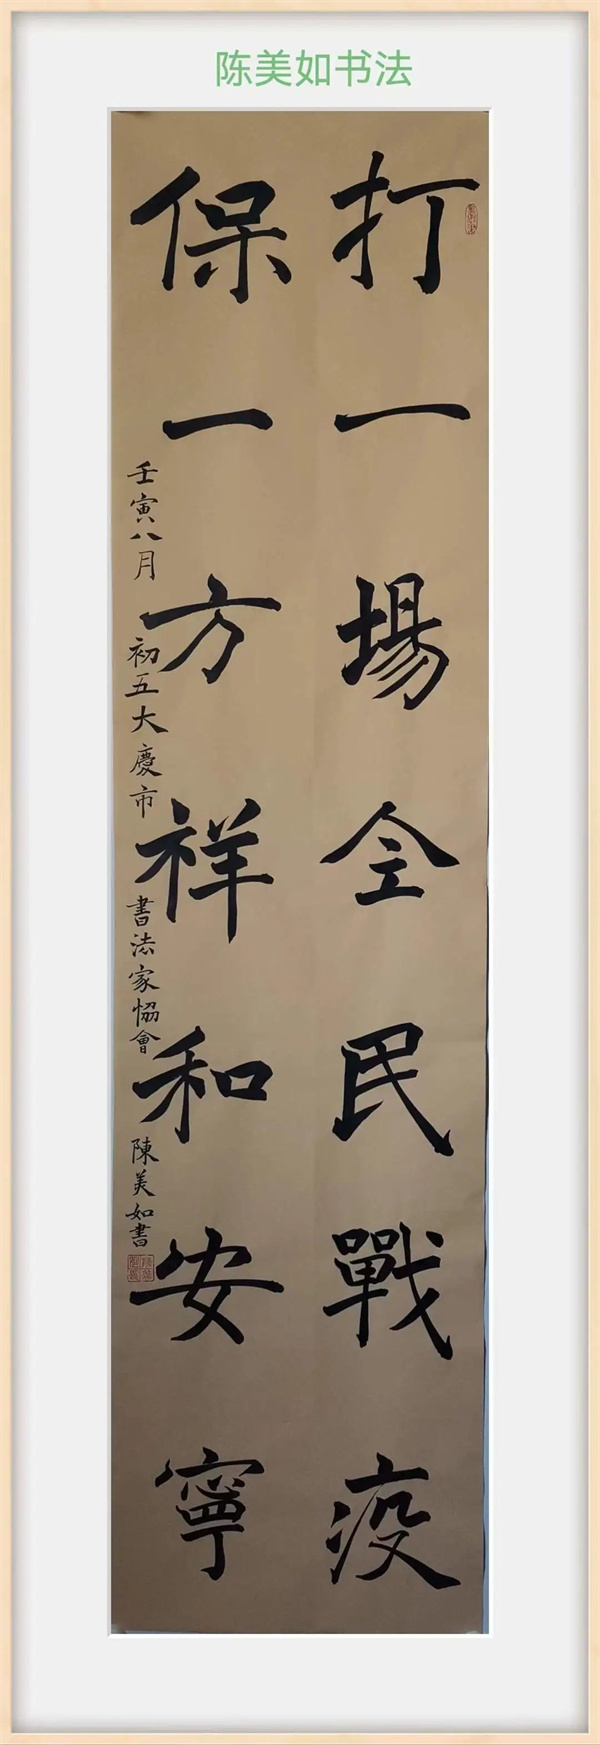 陈美如书法
打一場全民戰疫
保一方祥和安寧
壬寅八月初五大慶市書法家協會陳美如書